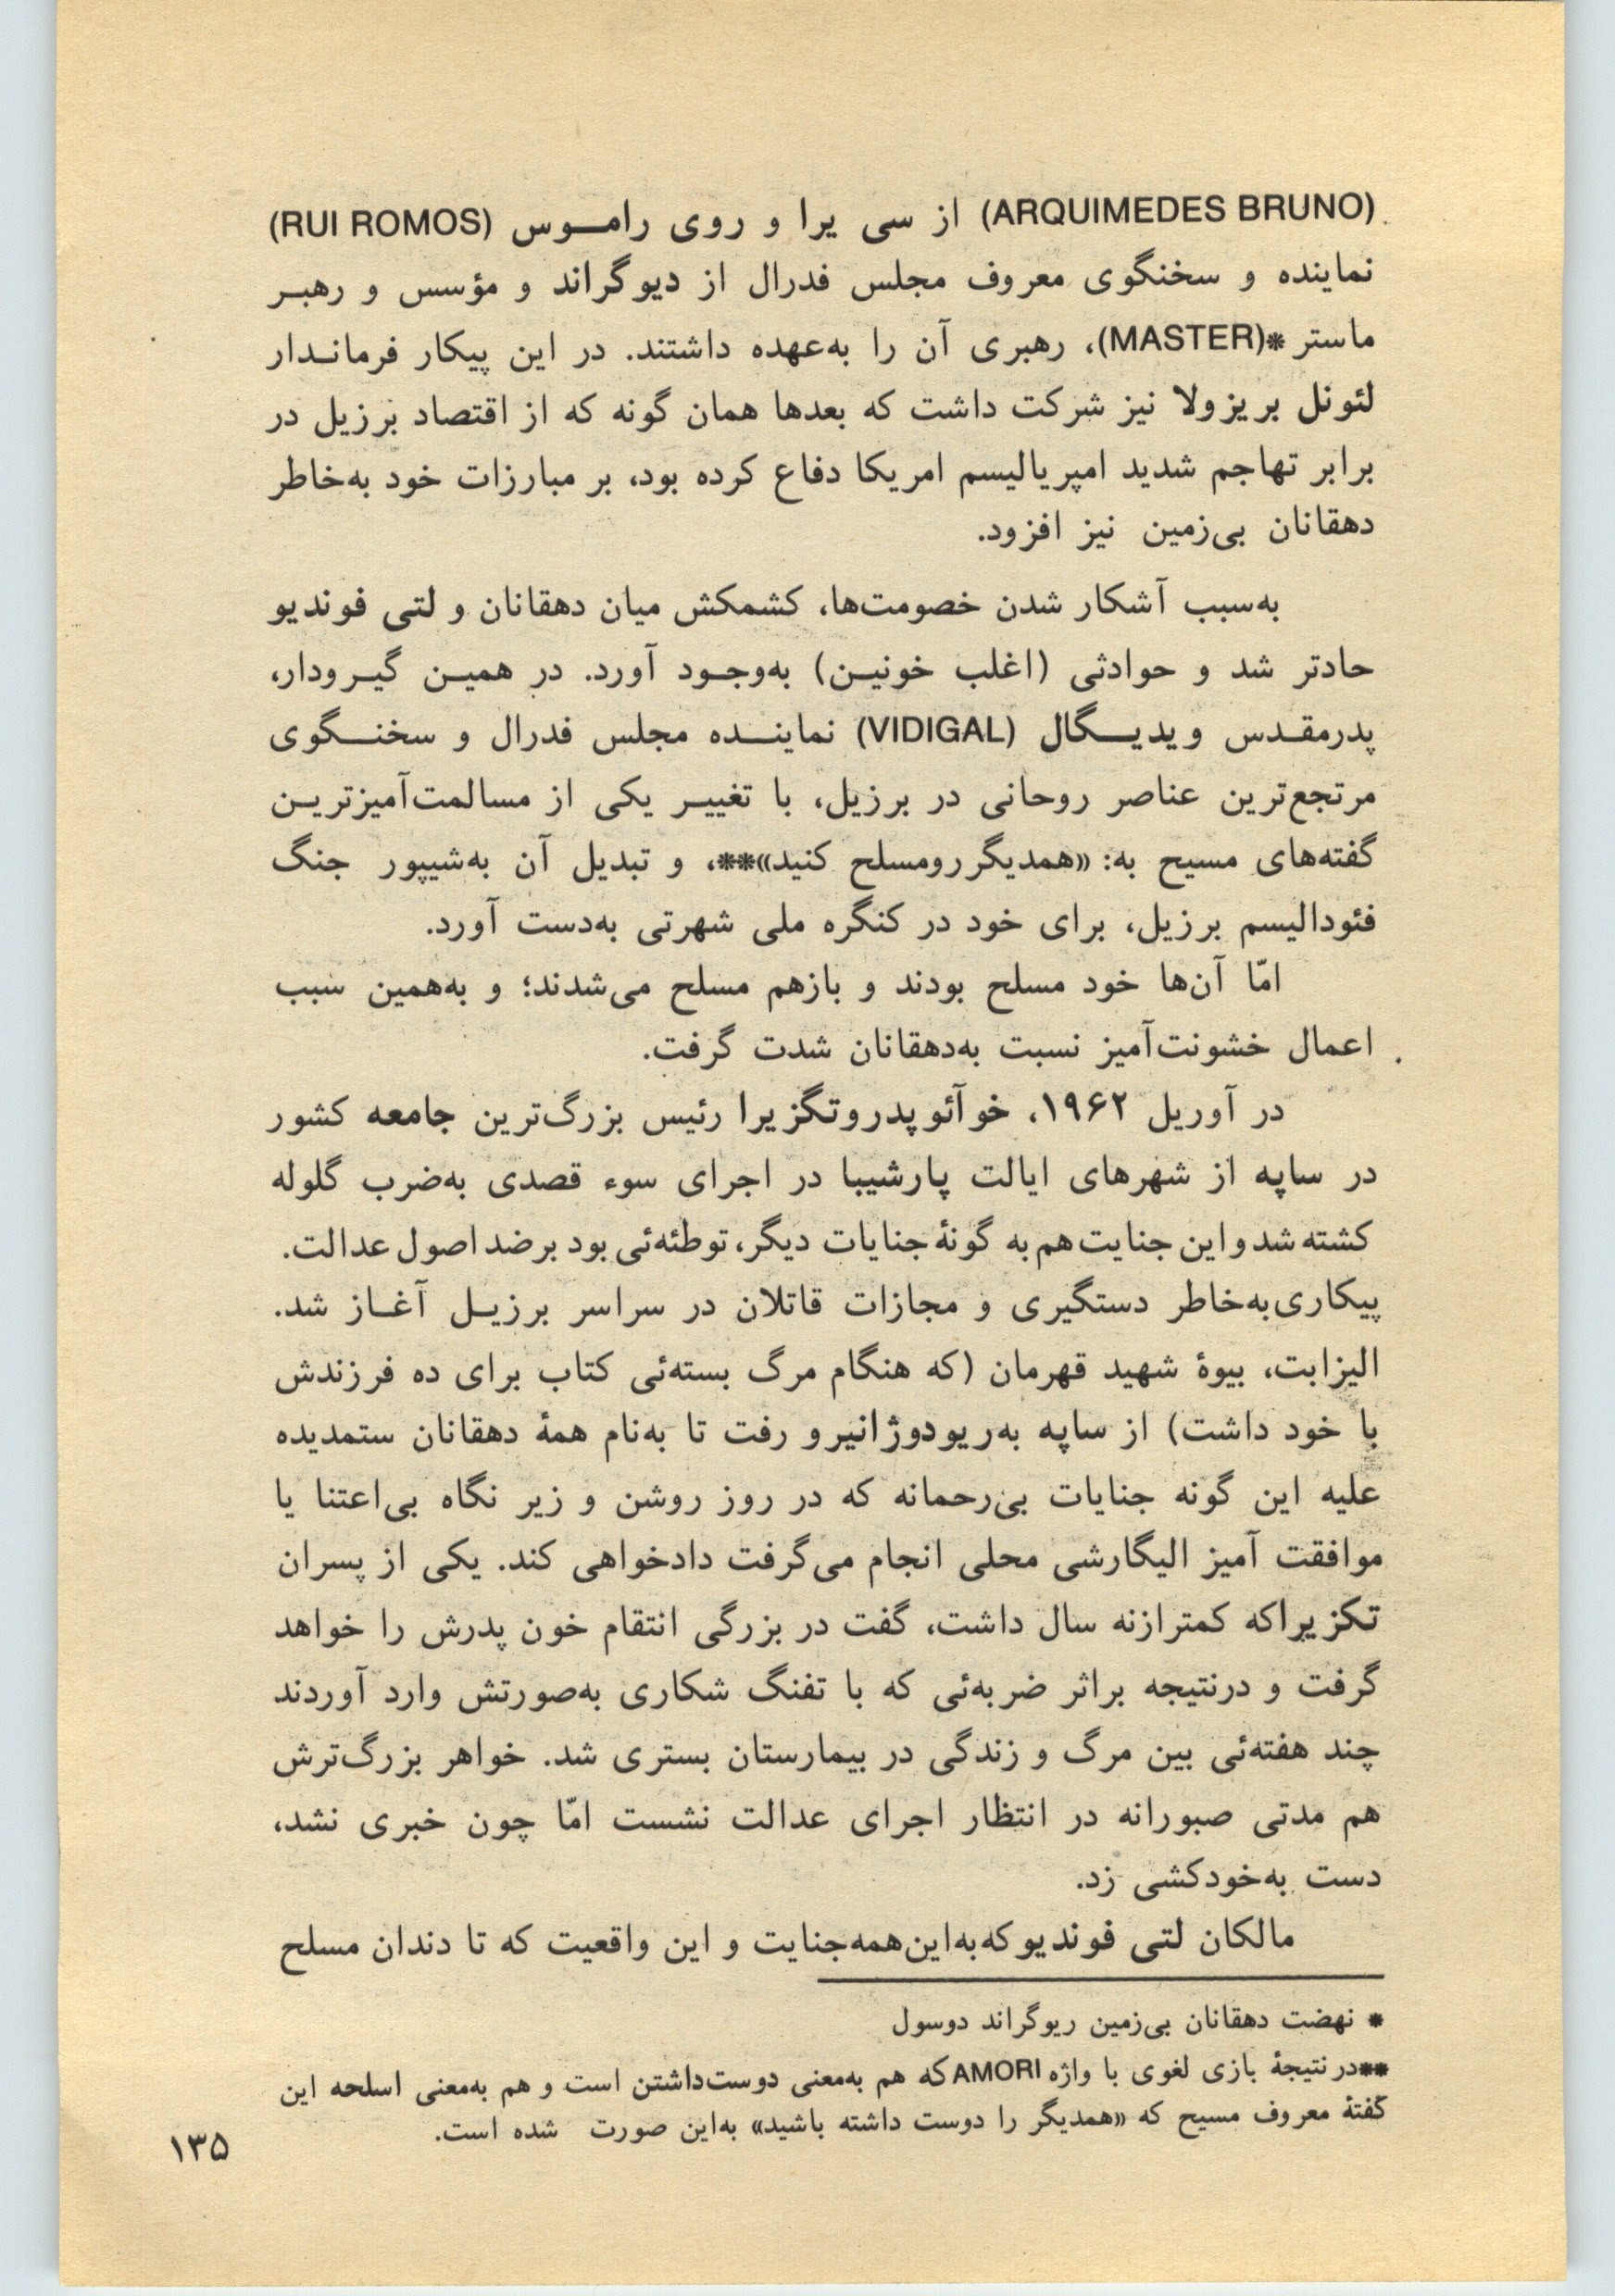 (ARQUIMEDES BRUNO) از سی یرا و روی رامـــوس (RUI ROMOS)
نماینده و سخنگوی معروف مجلس فدرال از دیوگراند و مؤسس و رهبـر
ماستر *(MASTER)، رهبری آن را به‌عهده داشتند. در این پیکار فرمانـدار
لئونل بریزولا نیز شرکت داشت که بعدها همان گونه که از اقتصاد برزیل در
برابر تهاجم شدید امپریالیسم امریکا دفاع کرده بود، بر مبارزات خود به‌خاطر
دهقانان بی‌زمین نیز افزود.
به‌سبب آشکار شدن خصومت‌ها، کشمکش میان دهقانان و لتی فوندیو
حادتر شد و حوادثی (اغلب خونیـن) به‌وجـود آورد. در همیـن گیـرودار،
پدرمقـدس ویدیــگال (VIDIGAL) نماینــده مجلس فدرال و سخنــگوی
مرتجع‌ترین عناصر روحانی در برزیل، با تغییـر یکی از مسالمت‌آمیزتریـن
گفته‌های مسیح به: «همدیگررومسلح کنید»**، و تبدیل آن به‌شیپور جنگ
فئودالیسم برزیل، برای خود در کنگره ملی شهرتی به‌دست آورد.
امّا آن‌ها خود مسلح بودند و بازهم مسلح می‌شدند؛ و به‌همین سبب
اعمال خشونت‌آمیز نسبت به‌دهقانان شدت گرفت.
در آوریل ۱۹۶۲، خوآئوپدروتگزیرا رئیس بزرگ‌ترین جامعه کشور
در ساپه از شهرهای ایالت پارشیبا در اجرای سوء قصدی به‌ضرب گلوله
کشته شد و این جنایت هم به گونهٔ جنایات دیگر، توطئه‌ئی بود برضد اصول عدالت.
پیکاری‌به‌خاطر دستگیری و مجازات قاتلان در سراسر برزیـل آغـاز شد.
الیزابت، بیوهٔ شهید قهرمان (که هنگام مرگ بسته‌ئی کتاب برای ده فرزندش
با خود داشت) از ساپه به‌ریودوژانیرو رفت تا به‌نام همهٔ دهقانان ستمدیده
علیه این گونه جنایات بی‌رحمانه که در روز روشن و زیر نگاه بی‌اعتنا یا
موافقت آمیز الیگارشی محلی انجام می‌گرفت دادخواهی کند. یکی از پسران
تکزیراکه کمترازنه سال داشت، گفت در بزرگی انتقام خون پدرش را خواهد
گرفت و درنتیجه براثر ضربه‌ئی که با تفنگ شکاری به‌صورتش وارد آوردند
چند هفته‌ئی بین مرگ و زندگی در بیمارستان بستری شد. خواهر بزرگ‌ترش
هم مدتی صبورانه در انتظار اجرای عدالت نشست امّا چون خبری نشد،
دست به‌خودکشی زد.
مالکان لتی فوندیو که‌به‌این‌همه‌جنایت و این واقعیت که تا دندان مسلح
* نهضت دهقانان بی‌زمین ریوگراند دوسول
**درنتیجهٔ بازی لغوی با واژه AMORI که هم به‌معنی دوست‌داشتن است و هم به‌معنی اسلحه این
گفتهٔ معروف مسیح که «همدیگر را دوست داشته باشید» به‌این صورت شده است.
۱۳۵